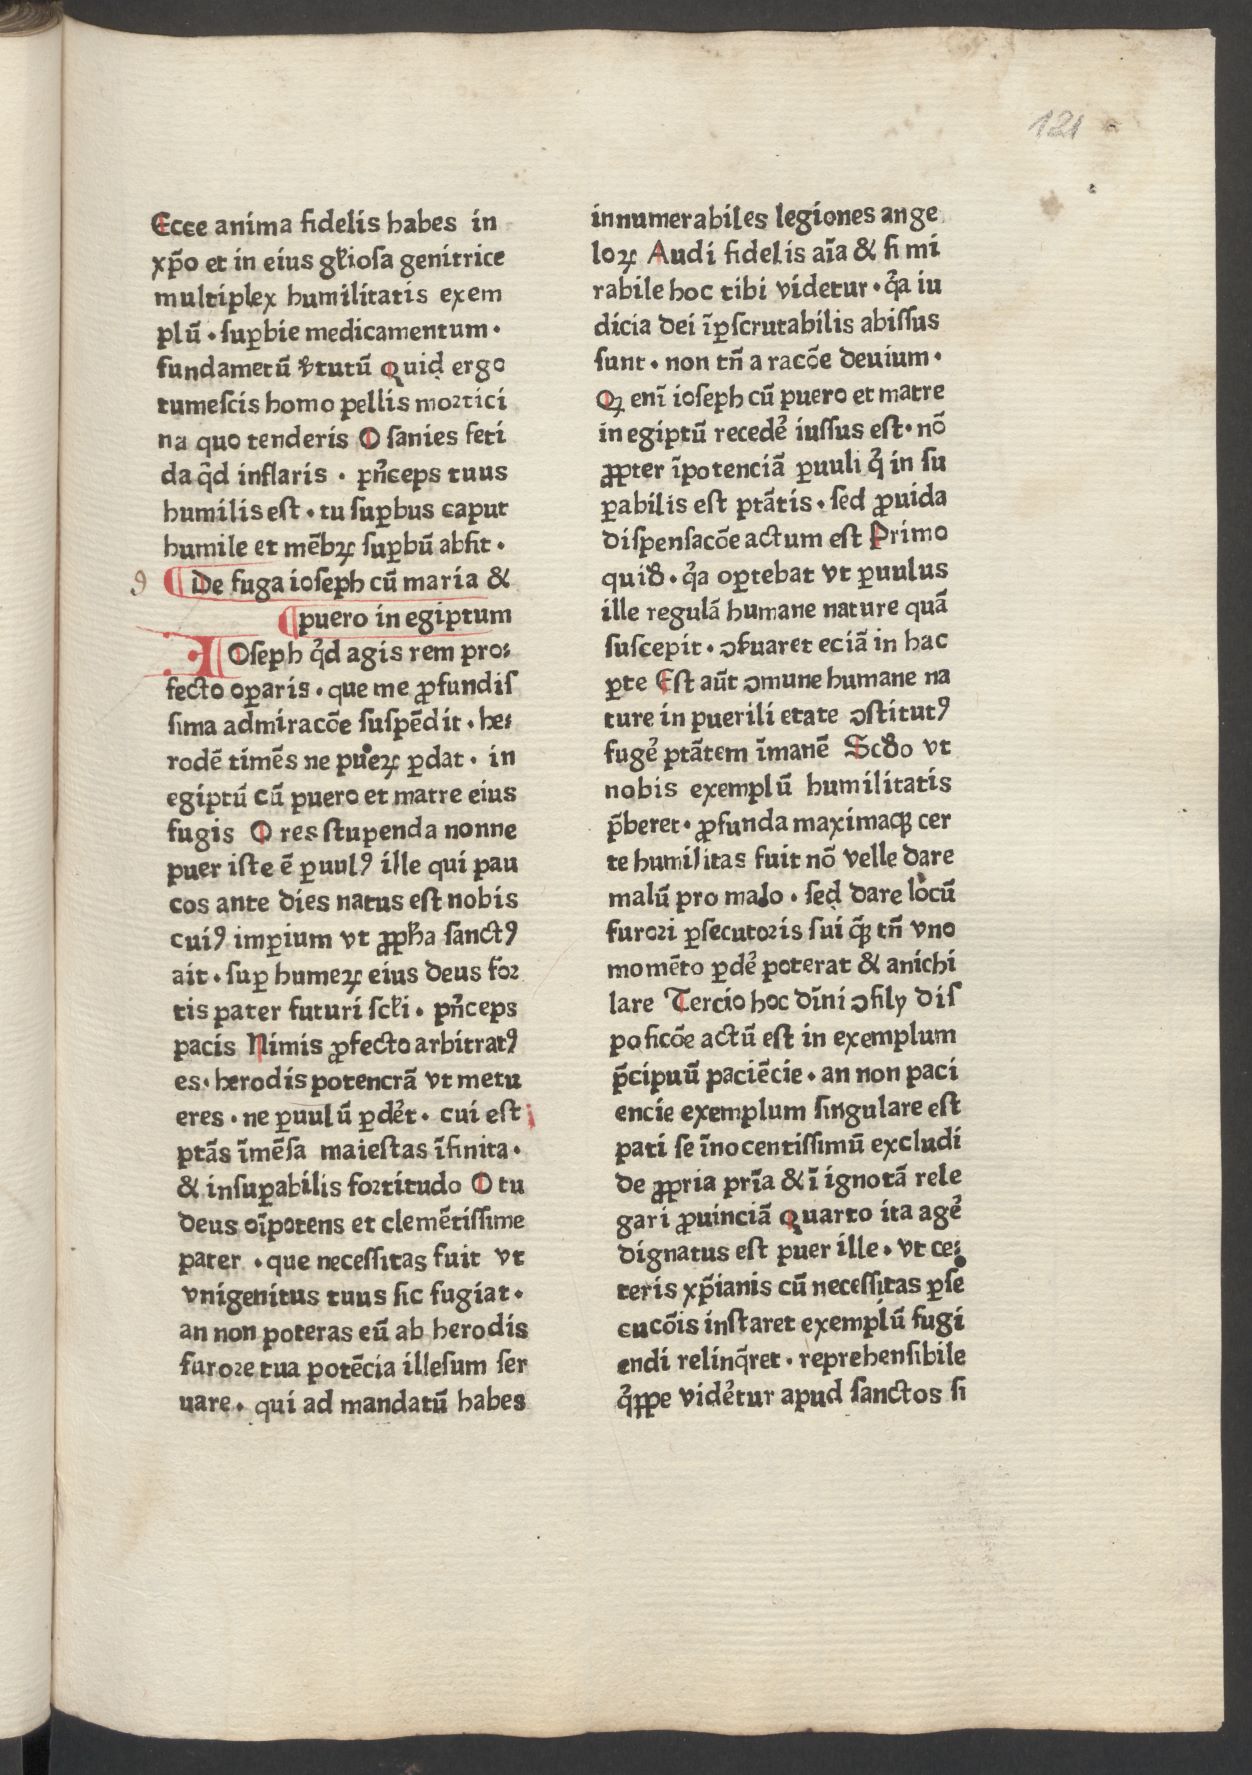 121
Ecce anima fidelis habes in
xp̄o et in eius gl̄iosa genitrice
multiplex humilitatis exem
plū · suꝑbie medicamentum ·
fundametū v̓tutū Quid ergo
tumescis homo pellis moꝛtici
na quo tenderis O sanies feti
da qͥd inflaris · pn̄ceps tuus
humilis est · tu suꝑbus caput
humile et mēbꝝ suꝑbū absit ·
9 De fuga ioseph cū maria &
puero in egiptum
IOseph qͥd agis rem pro⸗
fecto oꝑaris · que me ꝓfundis
sima admiracōe suspēdit · he⸗
rodē timēs ne pueꝝ ꝑdat · in
egiptū cū puero et matre eius
fugis O res stupenda nonne
puer iste ē ꝑuulꝰ ille qui pau
cos ante dies natus est nobis
cuiꝰ imꝑium vt ꝓph̄a sanctꝰ
ait · suꝑ humeꝝ eius deus foꝛ
tis pater futuri scl̄i · pn̄ceps
pacis Nimis ꝓfecto arbitratꝰ
es · herodis potencrā vt metu
eres · ne ꝑuulū ꝑde᷑t · cui est
ptās īmēsa maiestas īfinita ·
& insuꝑabilis foꝛtitudo O tu
deus oīpotens et clemētissime
pater · que necessitas fuit vt
vnigenitus tuus sic fugiat ·
an non poteras eū ab herodis
furoꝛe tua potēcia illesum ser
uare · qui ad mandatū habes
innumerabiles legiones ange
loꝝ Audi fidelis aīa & si mi
rabile hoc tibi videtur · qͥa iu
dicia dei īꝑscrutabilis abissus
sunt · non tn̄ a racōe deuium ·
Qꝝ eni ioseph cū puero et matre
in egiptū recede᷑ iussus est · nō
ꝓpter īpotenciā ꝑuuli qͥ in su
ꝑabilis est ptātis · sed ꝓuida
dispensacōe actum est Primo
quiꝺ · qͥa oꝑtebat vt ꝑuulus
ille regulā humane nature quā
suscepit · ɔẜuaret eciā in hac
ꝑte Est aūt ɔmune humane na
ture in puerili etate ɔstitutꝰ
fuge᷑ ptātem īmanē Scꝺo vt
nobis exemplū humilitatis
p̄beret · ꝓfunda maximaqꝫ cer
te humilitas fuit nō velle dare
malū pro malo · sed dare locū
furoꝛi ꝑsecutoꝛis sui qꝫ tn̄ vno
momēto ꝑde᷑ poterat & anichi
lare Tercio hoc dīni ɔsily dis
posicōe actū est in exemplum
p̄cipuū paciēcie · an non paci
encie exemplum singulare est
pati se īnocentissimū excludi
de ꝓpria pr̄ia & ī ignotā rele
gari ꝓuinciā Quarto ita age᷑
dignatus est puer ille · vt ce⸗
teris xp̄ianis cū necessitas ꝑse
cucōis instaret exemplū fugi
endi relinq̄ret · reprehensibile
qͥppe vide᷑tur apud sanctos si